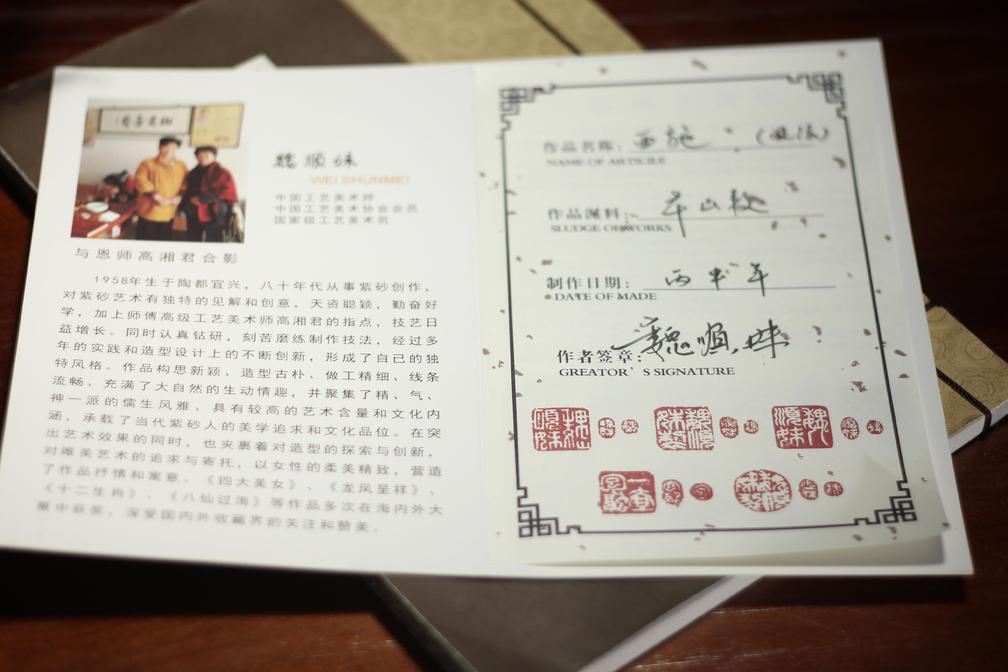 魏顺妹
WEI SHUNMEI
中国工艺美术师
中国工艺美术协会会员
国家级工艺美术员
与恩师高湘君合影
1958年生于陶都宜兴，八十年代从事紫砂创作，
对紫砂艺术有独特的见解和创意，天资聪颖，勤奋好
学，加上师傅高级工艺美术师高湘君的指点，技艺日
益增长。同时认真钻研，刻苦磨练制作技法，经过多
年的实践和造型设计上的不断创新，形成了自己的独
特风格。作品构思新颖、造型古朴、做工精细、线条
流畅、充满了大自然的生动情趣，并聚集了精、气、
神一派的儒生风雅、具有较高的艺术含量和文化内
涵，承载了当代紫砂人的美学追求和文化品位。在突
出艺术效果的同时，也夹裹着对造型的探索与创新，
对唯美艺术的追求与寄托，以女性的柔美精致，营造
了作品抒情和寓意。《四大美女》、《龙凤呈祥》、
《十二生肖》、《八仙过海》等作品多次在海内外大
展中获奖，深爱国内外收藏界的关注和赞美。
作品名称: 西施
NAME OF ARTICILE
作品泥料: 本山段
SLUDGE OF WORKS
制作日期: 丙申年
DATE OF MADE
作者签章: 魏顺妹
GREATOR'S SIGNATURE